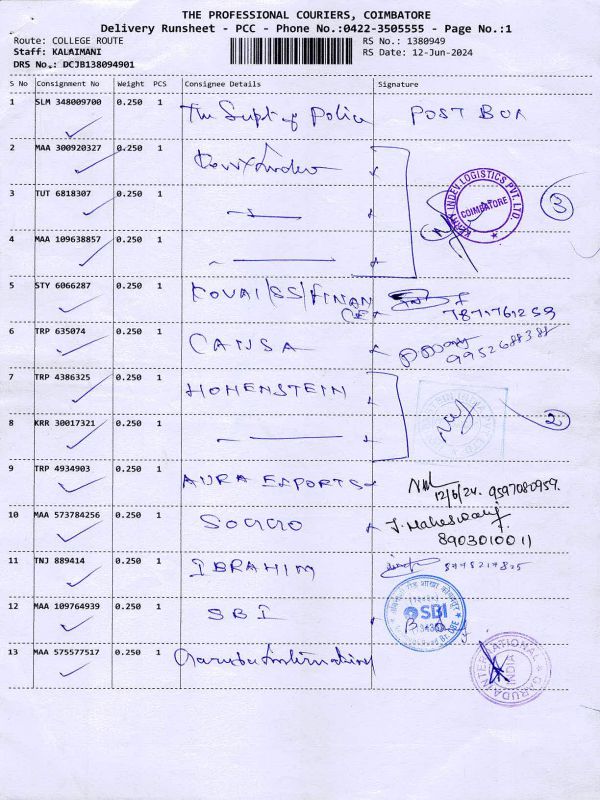 THE PROFESSIONAL COURIERS, COIMBATORE
Delivery Runsheet - PCC - Phone No.:0422-3505555 - Page No.:1
Route: COLLEGE ROUTE
Staff: KALAIMANI
DRS No.: DCJB138094901
RS No.: 1380949
RS Date: 12-Jun-2024
S No Consignment No Weight PCS Consignee Details Signature
1 SLM 348009700 0.250 1 The Supt of Police POST BOX
2 MAA 300920327 0.250 1
3 TUT 6818307 0.250 1
INDEV LOGISTICS PVT. LTD.
COIMBATORE
3
4 MAA 109638857 0.250 1
5 STY 6066287 0.250 1 KOVAI/SS/FINAN
CE 7871761259
6 TRP 635074 0.250 1 CANSA
9952688381
7 TRP 4386325 0.250 1 HOHENSTEIN
2
8 KRR 30017321 0.250 1
9 TRP 4934903 0.250 1 AURA EXPORTS
12/6/24. 9597080959.
10 MAA 573784256 0.250 1 J. Maheswari
8903010011
11 TNJ 889414 0.250 1 IBRAHIM
12 MAA 109764939 0.250 1 SBI
SBI
13 MAA 575577517 0.250 1 Garuda International
GARUDA INTERNATIONAL
INDIA